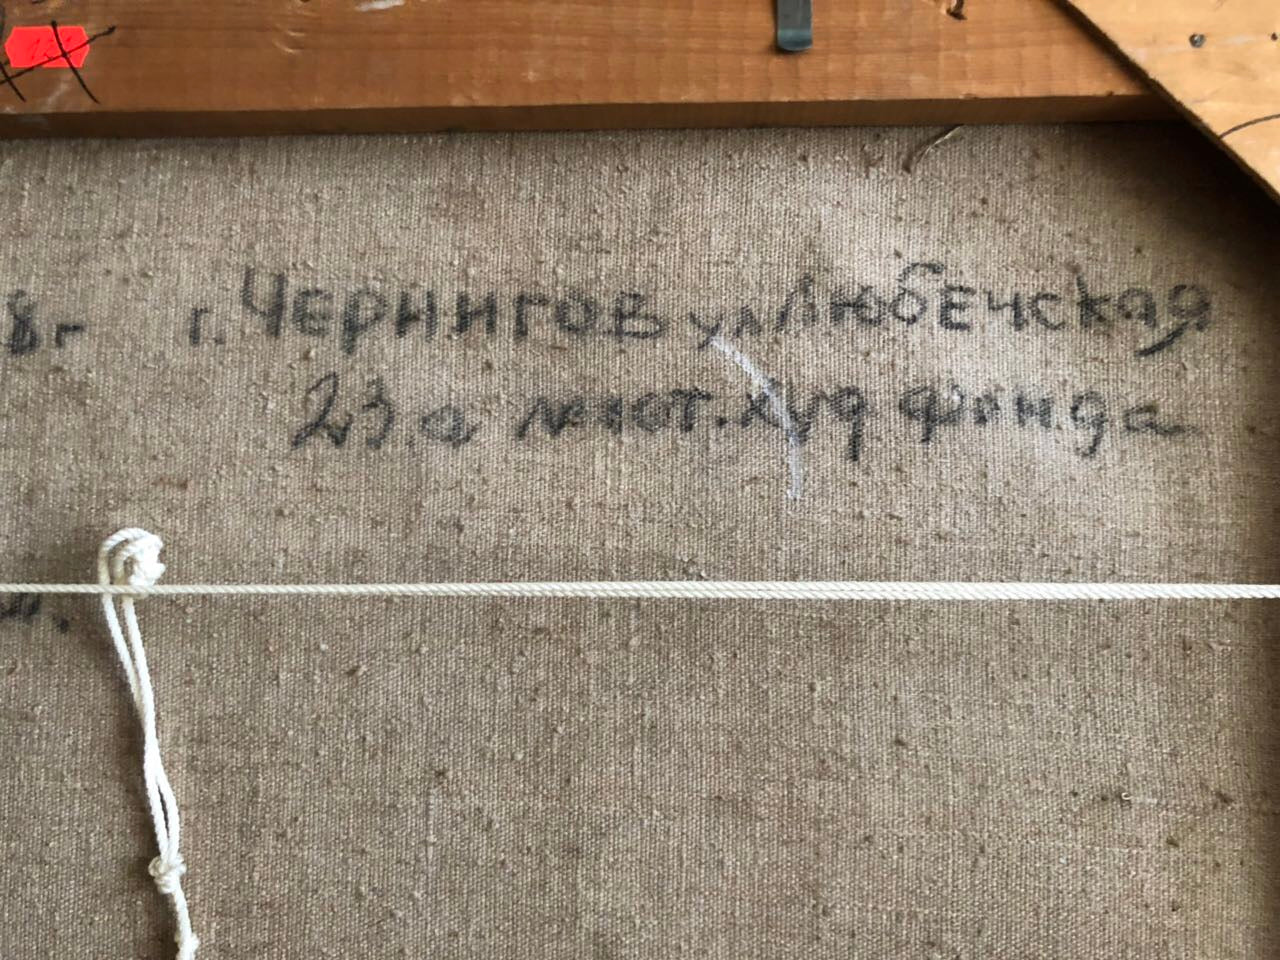 8г г. Чернигов ул Любечская
23 а маст. худ фонда